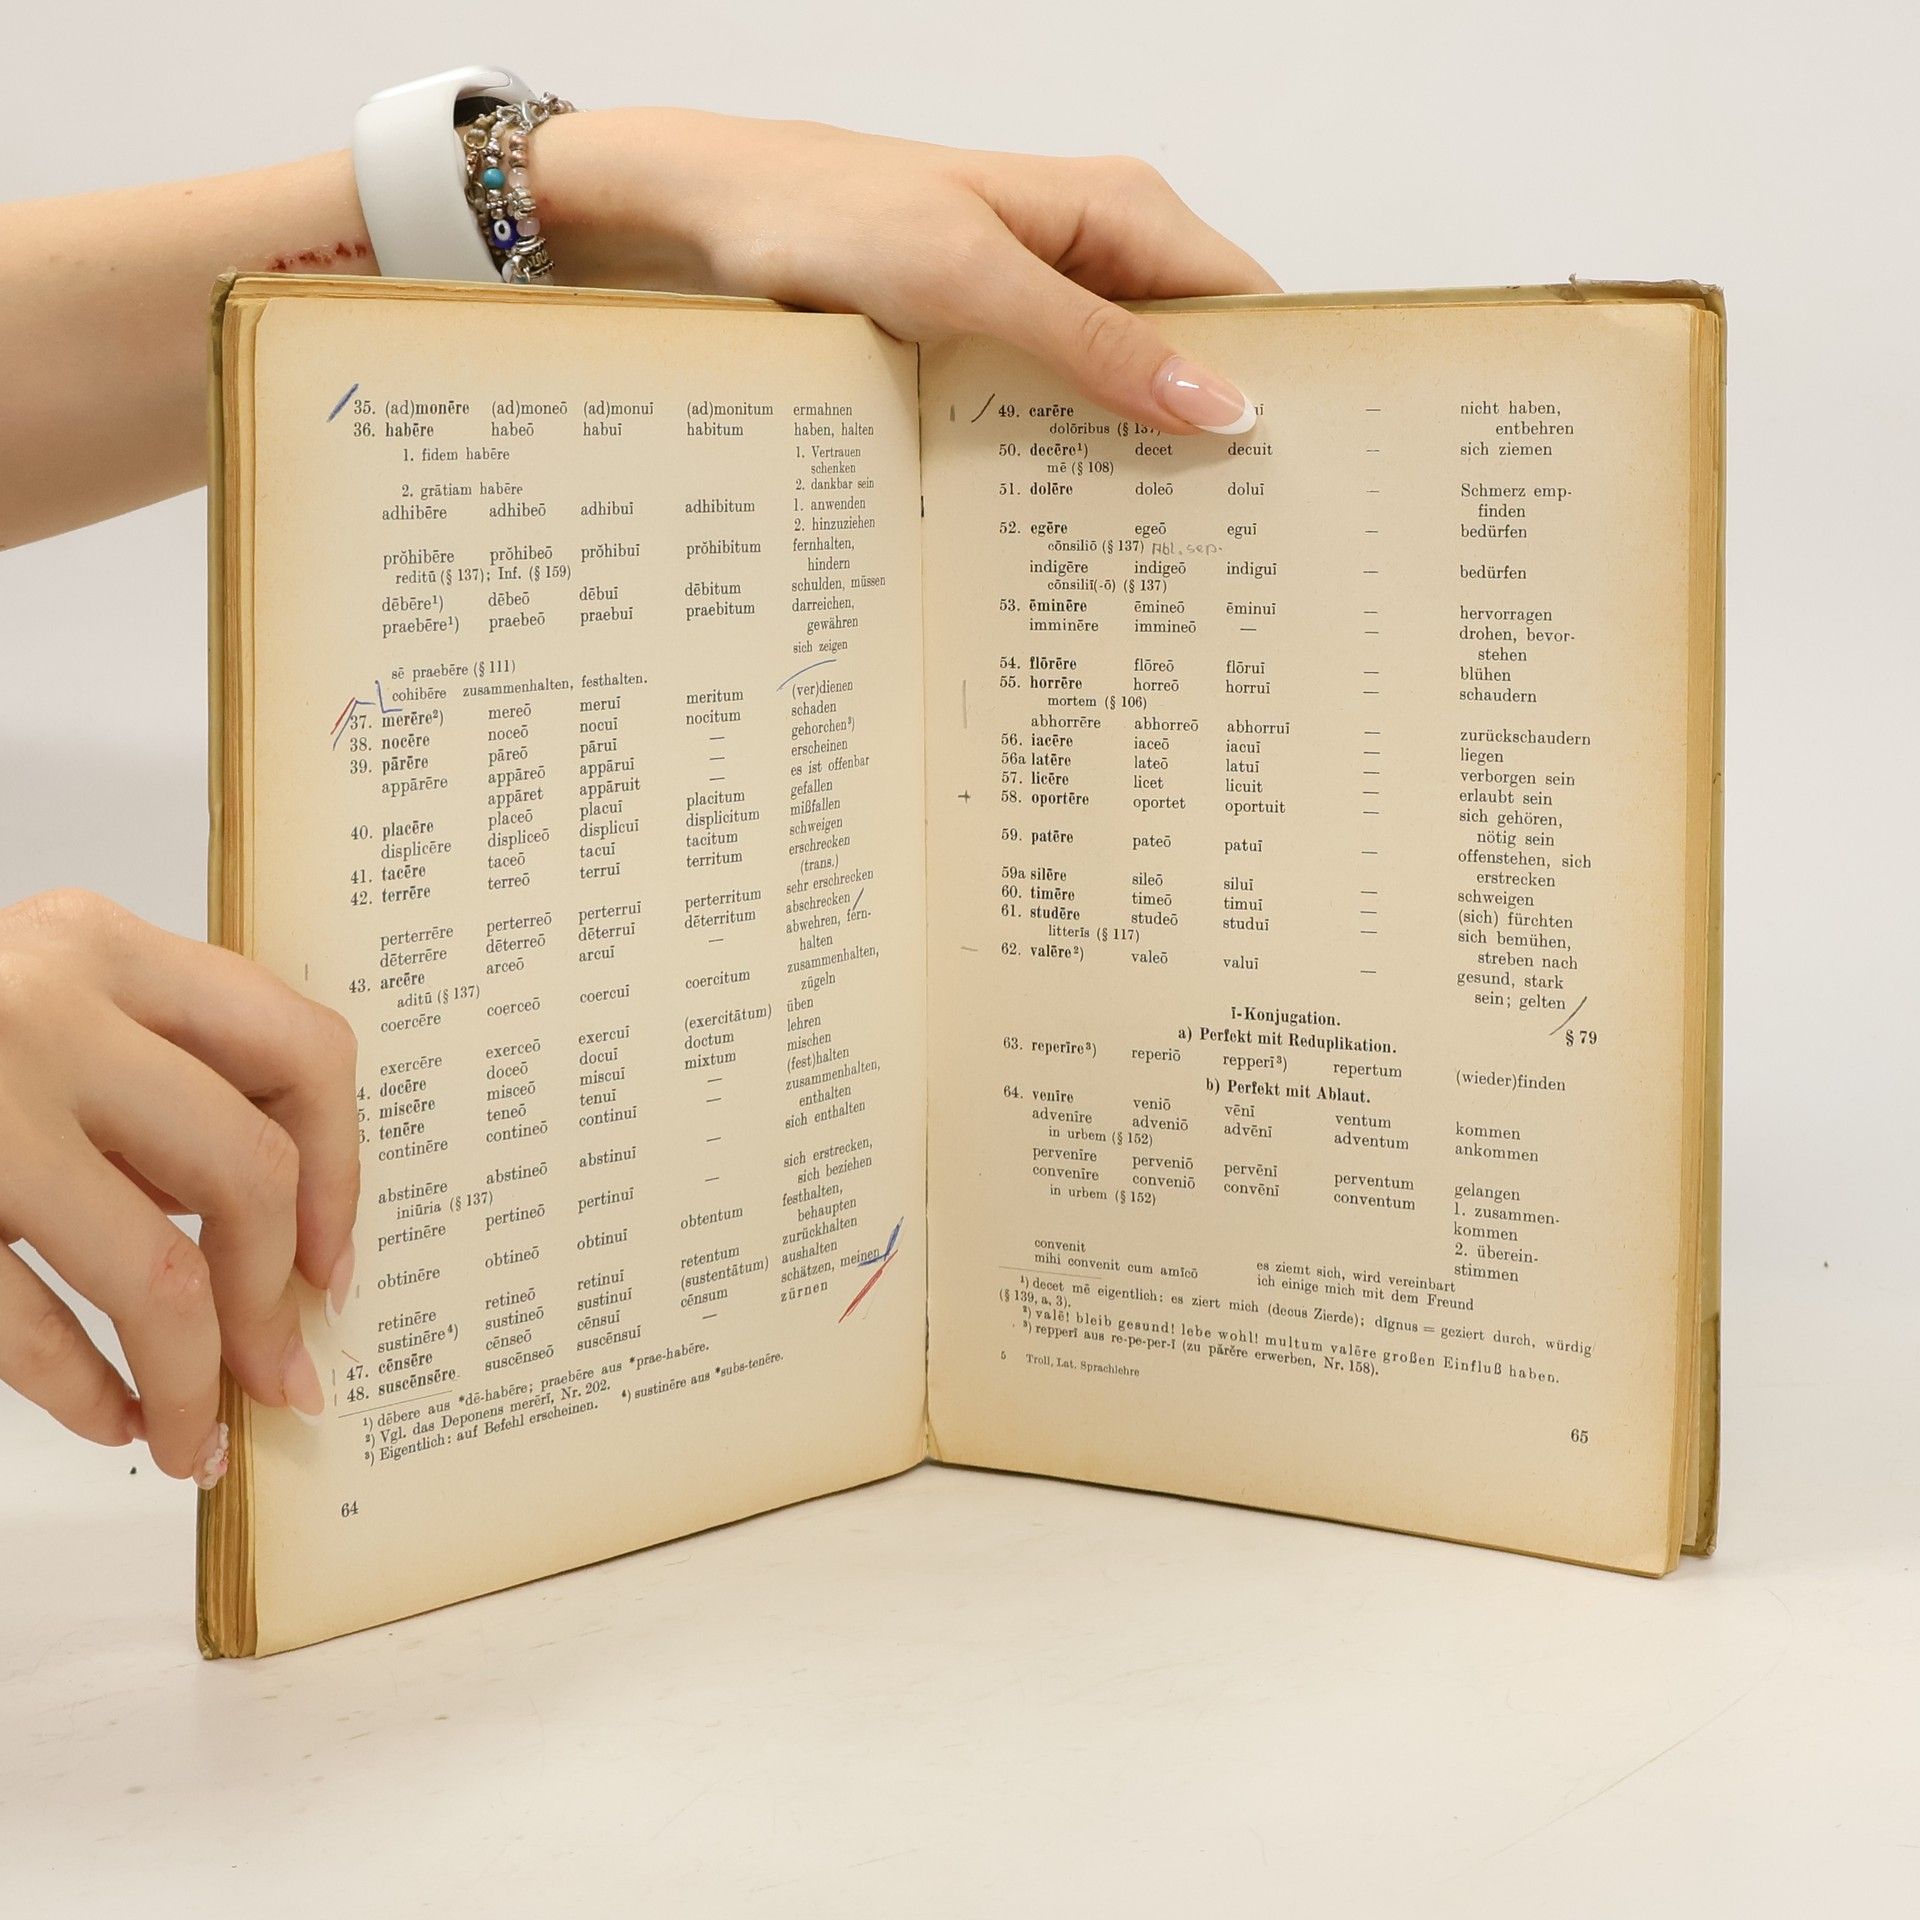 35. (ad)monēre (ad)moneō (ad)monuī (ad)monitum ermahnen
36. habēre habeō habuī habitum haben, halten
1. fidem habēre 1. Vertrauen
schenken
2. grātiam habēre 2. dankbar sein
adhibēre adhibeō adhibuī adhibitum 1. anwenden
2. hinzuziehen
prŏhibēre prŏhibeō prŏhibuī prŏhibitum fernhalten,
hindern
reditū (§ 137); Inf. (§ 159)
dēbēre¹) dēbeō dēbuī dēbitum schulden, müssen
praebēre¹) praebeō praebuī praebitum darreichen,
gewähren
sē praebēre (§ 111) sich zeigen
cohibēre zusammenhalten, festhalten.
37. merēre²) mereō meruī meritum (ver)dienen
38. nocēre noceō nocuī nocitum schaden
39. pārēre pāreō pāruī — gehorchen³)
appārēre appāreō appāruī — erscheinen
appāret appāruit — es ist offenbar
40. placēre placeō placuī placitum gefallen
displicēre displiceō displicuī displicitum mißfallen
41. tacēre taceō tacuī tacitum schweigen
42. terrēre terreō terruī territum erschrecken
(trans.)
perterrēre perterreō perterruī perterritum sehr erschrecken
dēterrēre dēterreō dēterruī dēterritum abschrecken
43. arcēre arceō arcuī — abwehren, fern-
halten
aditū (§ 137)
coercēre coerceō coercuī coercitum zusammenhalten,
zügeln
exercēre exerceō exercuī (exercitātum) üben
4. docēre doceō docuī doctum lehren
5. miscēre misceō miscuī mixtum mischen
6. tenēre teneō tenuī — (fest)halten
continēre contineō continuī — zusammenhalten,
enthalten
abstinēre abstineō abstinuī — sich enthalten
iniūria (§ 137)
pertinēre pertineō pertinuī — sich erstrecken,
sich beziehen
obtinēre obtineō obtinuī obtentum festhalten,
behaupten
retinēre retineō retinuī retentum zurückhalten
sustinēre⁴) sustineō sustinuī (sustentātum) aushalten
47. cēnsēre cēnseō cēnsuī cēnsum schätzen, meinen
48. suscēnsēre suscēnseō suscēnsuī — zürnen
¹) dēbere aus *dē-habēre; praebēre aus *prae-habēre.
²) Vgl. das Deponens merērī, Nr. 202. ⁴) sustinēre aus *subs-tenēre.
³) Eigentlich: auf Befehl erscheinen.
64
49. carēre uī — nicht haben,
entbehren
dolōribus (§ 137)
50. decēre¹) decet decuit — sich ziemen
mē (§ 108)
51. dolēre doleō doluī — Schmerz emp-
finden
52. egēre egeō eguī — bedürfen
cōnsiliō (§ 137) Abl. sep.
indigēre indigeō indiguī — bedürfen
cōnsiliī(-ō) (§ 137)
53. ēminēre ēmineō ēminuī — hervorragen
imminēre immineō — — drohen, bevor-
stehen
54. flōrēre flōreō flōruī — blühen
55. horrēre horreō horruī — schaudern
mortem (§ 106)
abhorrēre abhorreō abhorruī — zurückschaudern
56. iacēre iaceō iacuī — liegen
56a latēre lateō latuī — verborgen sein
57. licēre licet licuit — erlaubt sein
58. oportēre oportet oportuit — sich gehören,
nötig sein
59. patēre pateō patuī — offenstehen, sich
erstrecken
59a silēre sileō siluī — schweigen
60. timēre timeō timuī — (sich) fürchten
61. studēre studeō studuī — sich bemühen,
streben nach
litterīs (§ 117)
62. valēre²) valeō valuī — gesund, stark
sein; gelten
ī-Konjugation.
§ 79
a) Perfekt mit Reduplikation.
63. reperīre³) reperiō repperī³) repertum (wieder)finden
b) Perfekt mit Ablaut.
64. venīre veniō vēnī ventum kommen
advenīre adveniō advēnī adventum ankommen
in urbem (§ 152)
pervenīre perveniō pervēnī perventum gelangen
convenīre conveniō convēnī conventum 1. zusammen-
kommen
in urbem (§ 152)
2. überein-
stimmen
convenit es ziemt sich, wird vereinbart
mihi convenit cum amīcō ich einige mich mit dem Freund
¹) decet mē eigentlich: es ziert mich (decus Zierde); dīgnus = geziert durch, würdig
(§ 139, a, 3).
²) valē! bleib gesund! lebe wohl! multum valēre großen Einfluß haben.
³) repperī aus re-pe-per-ī (zu părĕre erwerben, Nr. 158).
5 Troll, Lat. Sprachlehre
65